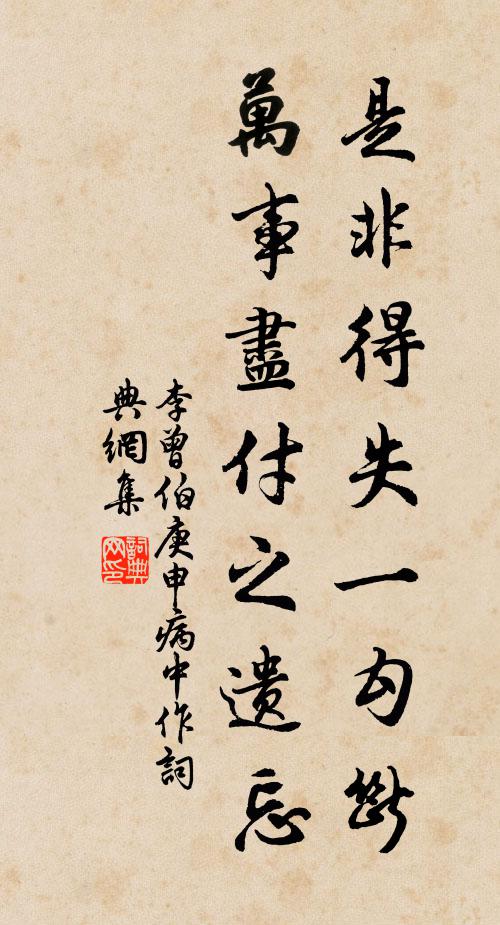 是非得失一勾斷
萬事盡付之遺忘
李曾伯庚申病中作詞
典網集
詞典網印